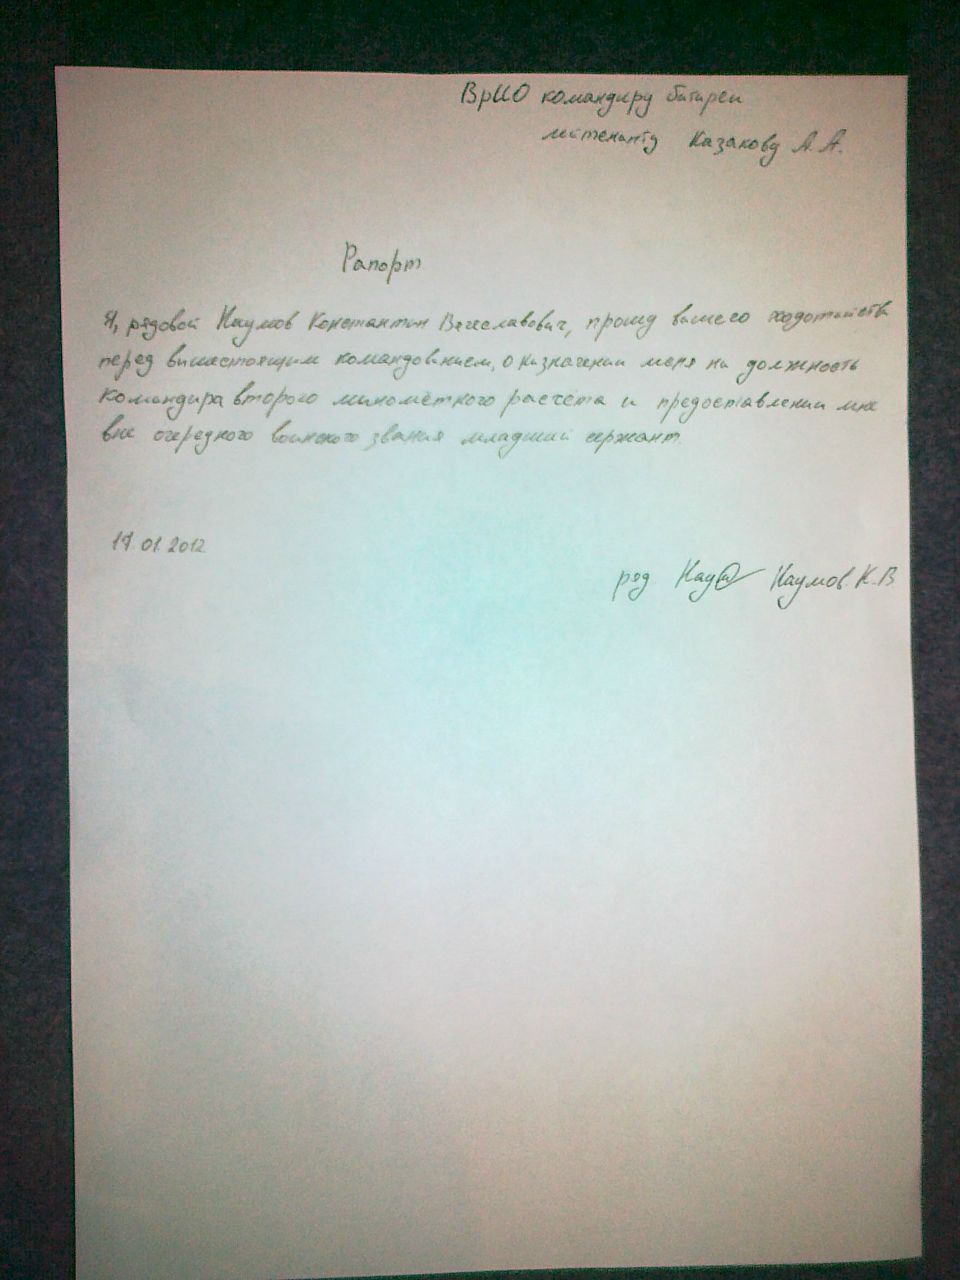 ВрИО командиру батареи
лейтенанту Казакову А.А.
Рапорт
Я, рядовой Наумов Константин Вячеславович, прошу вашего ходотайства
перед вышестоящим командованием, о назначении меня на должность
командира второго миномётного расчёта и предоставлении мне
вне очередного воинского звания младший сержант.
17.01.2012
ряд Наумов.К.В